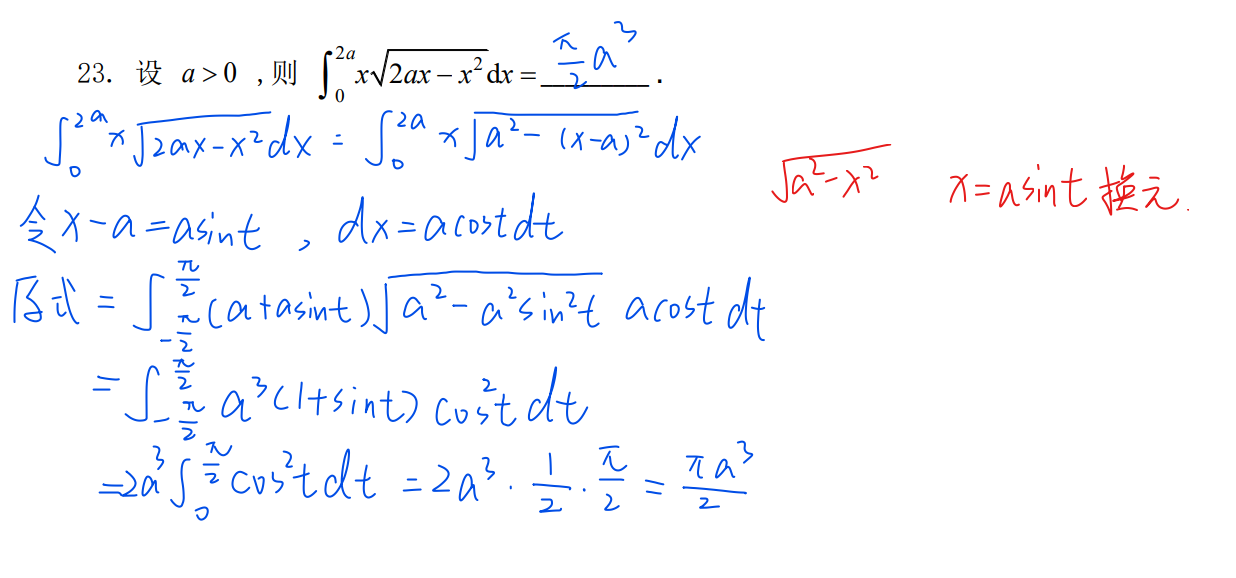 23. 设 a>0 ,则 ∫₀²ᵃ x√(2ax−x²) dx = π/2 a³ .
∫₀²ᵃ x√(2ax−x²) dx = ∫₀²ᵃ x√(a²−(x−a)²) dx
√(a²−x²) x=asint 换元.
令 x−a=asint , dx=acostdt
原式 = ∫_{-π/2}^{π/2} (a+asint)√(a²−a²sin²t) acost dt
= ∫_{-π/2}^{π/2} a³(1+sint) cos²t dt
=2a³ ∫₀^{π/2} cos²t dt = 2a³ · 1/2 · π/2 = πa³/2